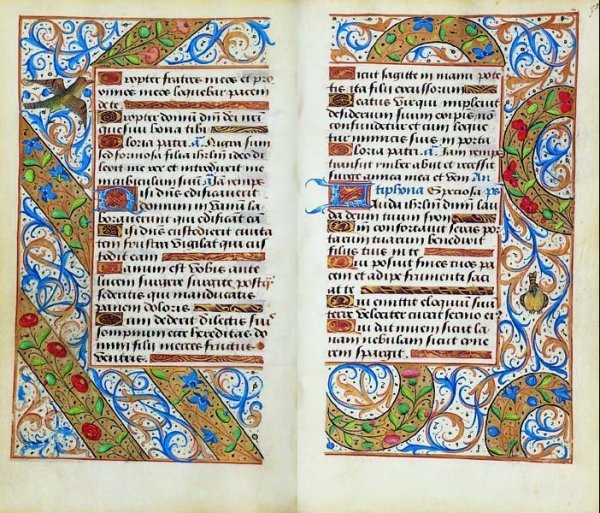 Propter fratres meos et pro
ximos meos loquebar pacem
de te
Propter domū dn̄i dei nr̄i
quesivi bona tibi
Gloria patri. a᷑ Nigra sum
sed formosa filia ihrlm̄ ideo di
lexit me rex et introduxit me
in cubiculum suum a᷑ Iam hyemps
Nisi dn̄s edificaverit
domum in vanū la
boraverunt qui edificant eā
Nisi dn̄s custodierit civita
tem frustra vigilat qui cus
todit eam
Vanum est vobis ante
lucem surgere surgite postq̄
sederitis qui manducatis
panem doloris
Cum dederit dilectis suis
sompnum ecce hereditas do
mini filii merces fructus
ventris.
Sicut sagitte in manu potē
tis ita filii excussorum
Beatus vir qui implevit
desiderium suum ex ipsis nō
confundetur cum loque
tur inimicis suis in porta
Gloria patri. a᷑ Iam hyemps
transiit imber abiit et recessit
surge amica mea et veni An
tiphona Speciosa ps
Lauda ihrlm̄ dn̄um lau
da deum tuum syon
Qm̄ confortavit seras por
tarum tuarum benedixit
filiis tuis in te
Qui posuit fines tuos pa
cem et adipe frumenti saci
at te
Qui emittit eloquium suū
terre velociter currit sermo ei᷒
Qui dat nivem sicut la
nam nebulam sicut cine
rem spargit.